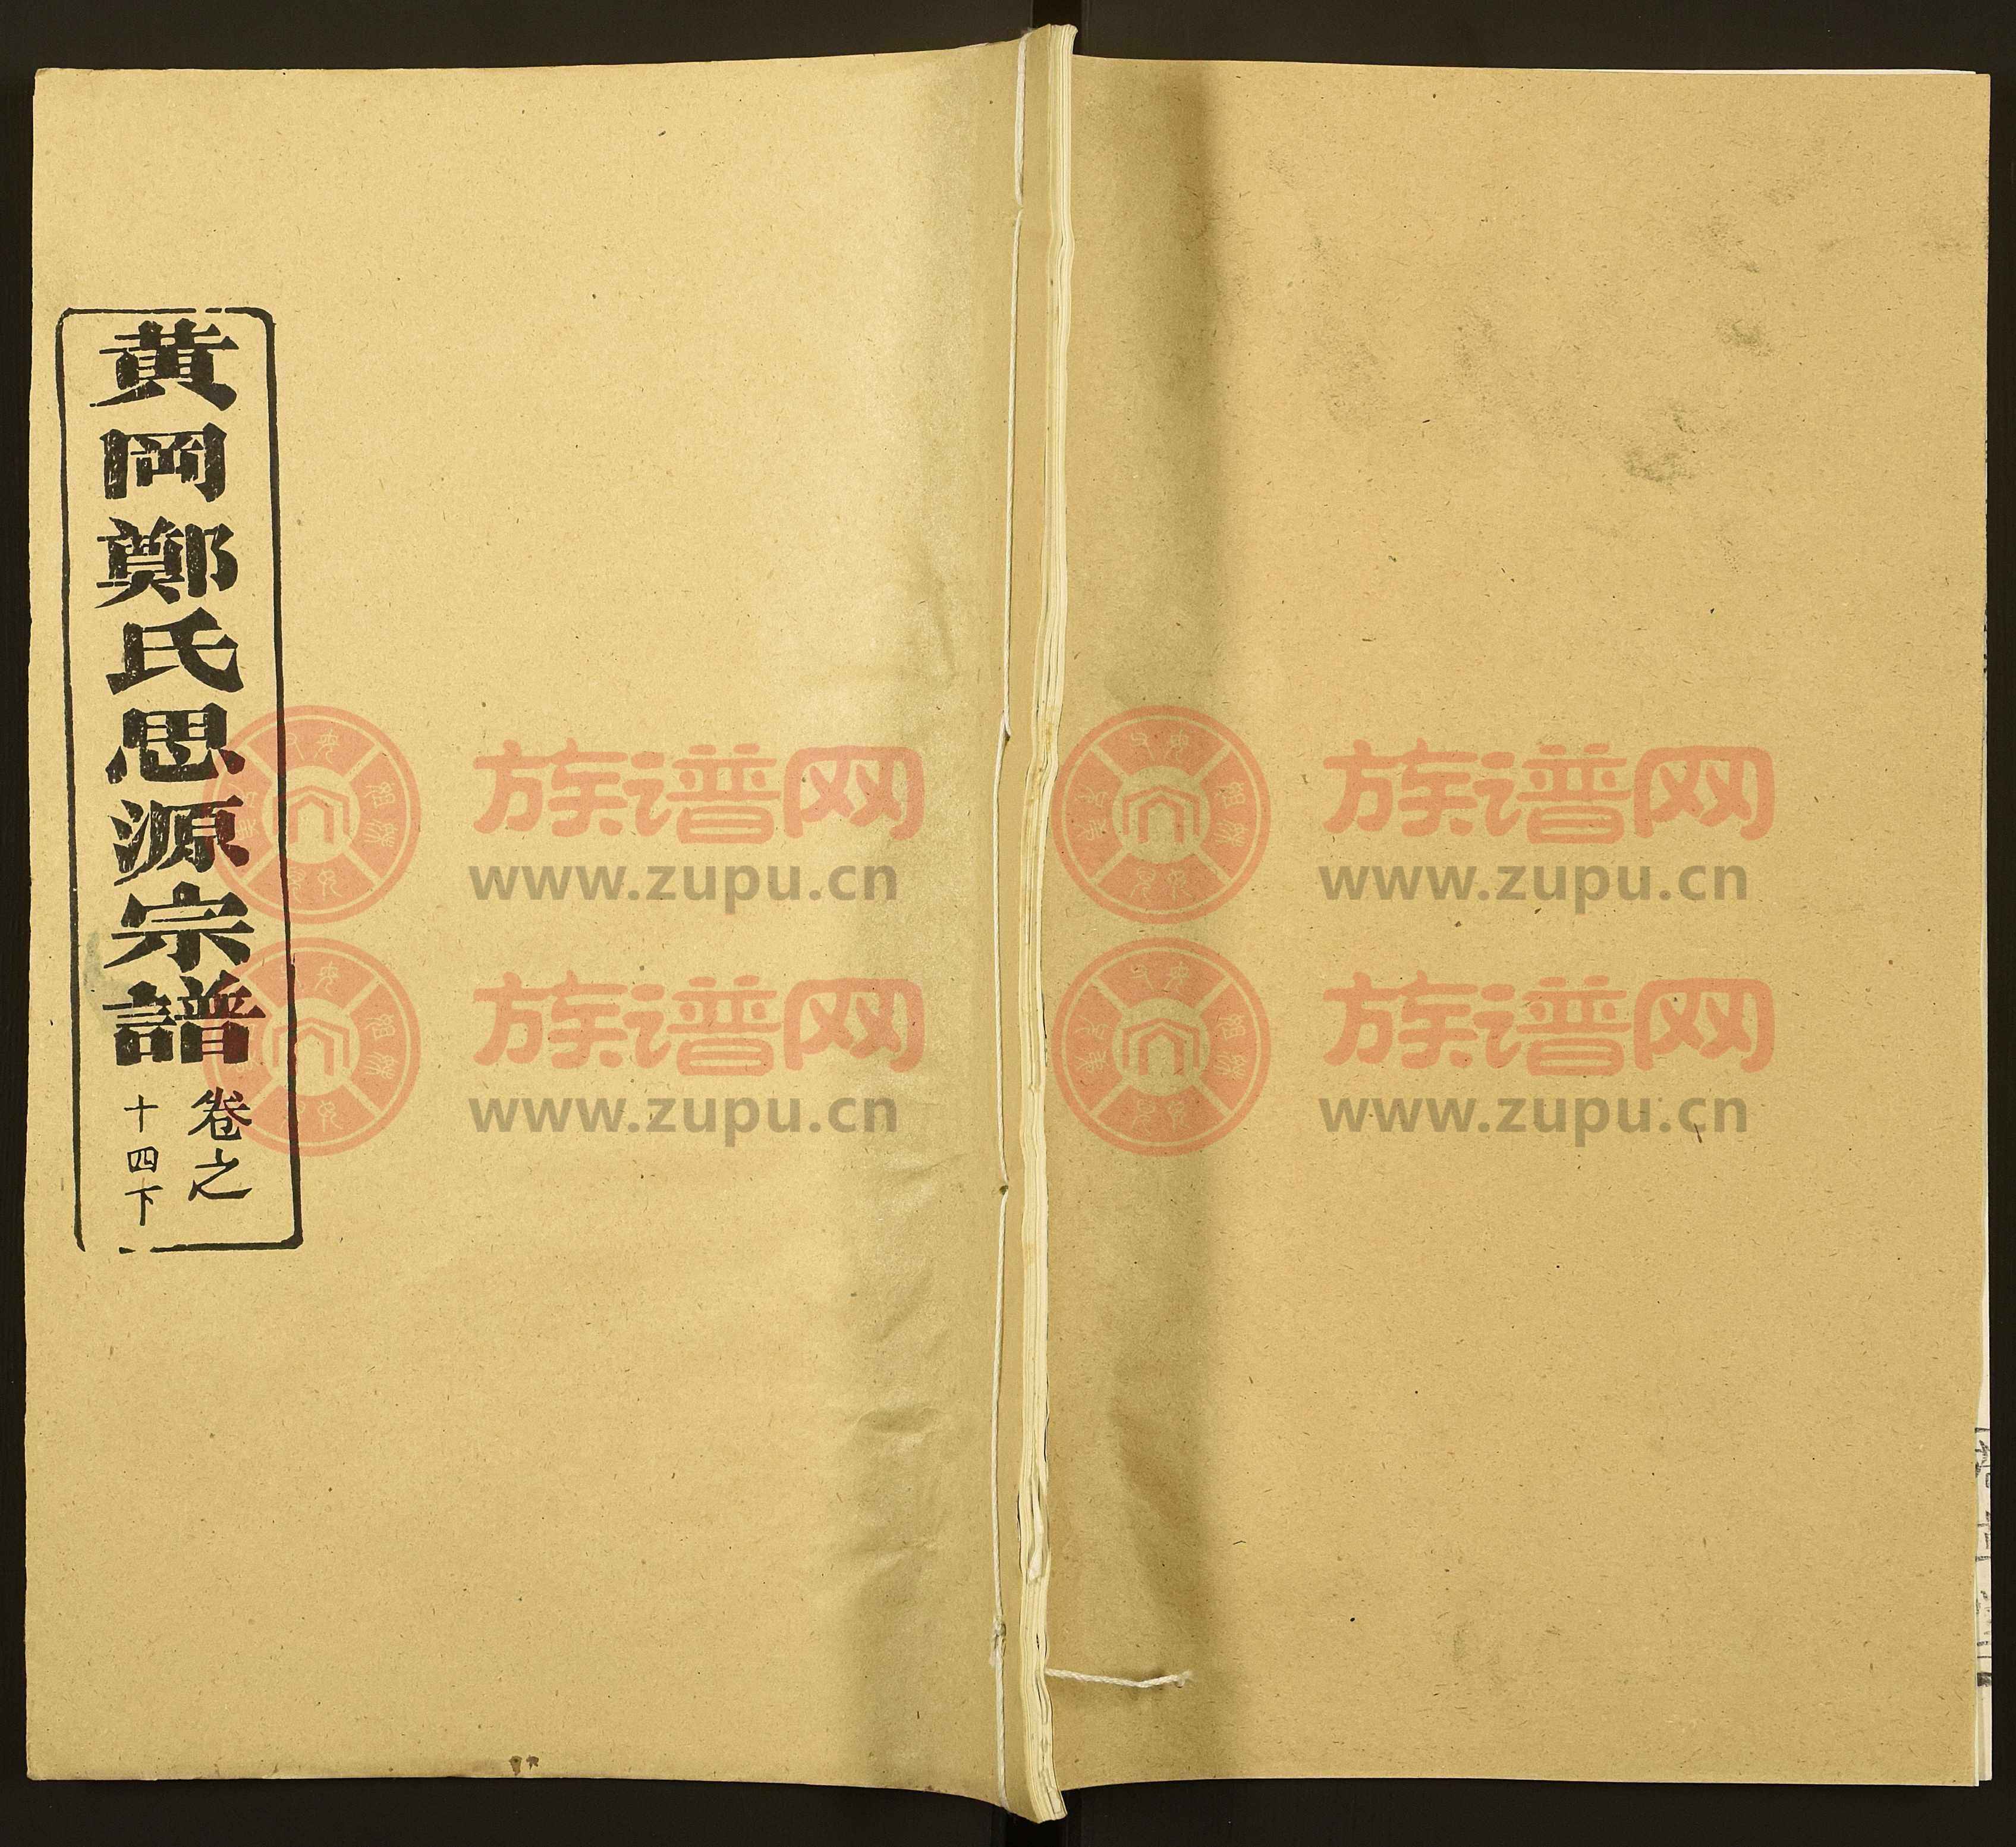 黃岡鄭氏思源宗譜
卷之
十四下
族谱网
www.zupu.cn
族谱网
www.zupu.cn
族谱网
www.zupu.cn
族谱网
www.zupu.cn